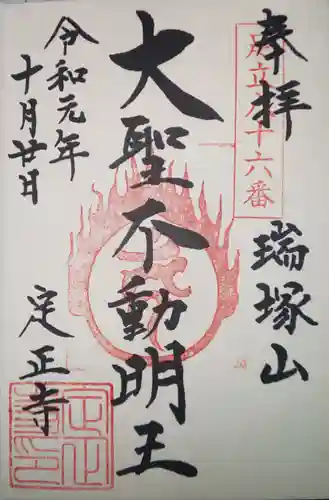 奉拝
足立八十六番
瑞塚山
大聖不動明王
令和元年
十月廿日
定正寺